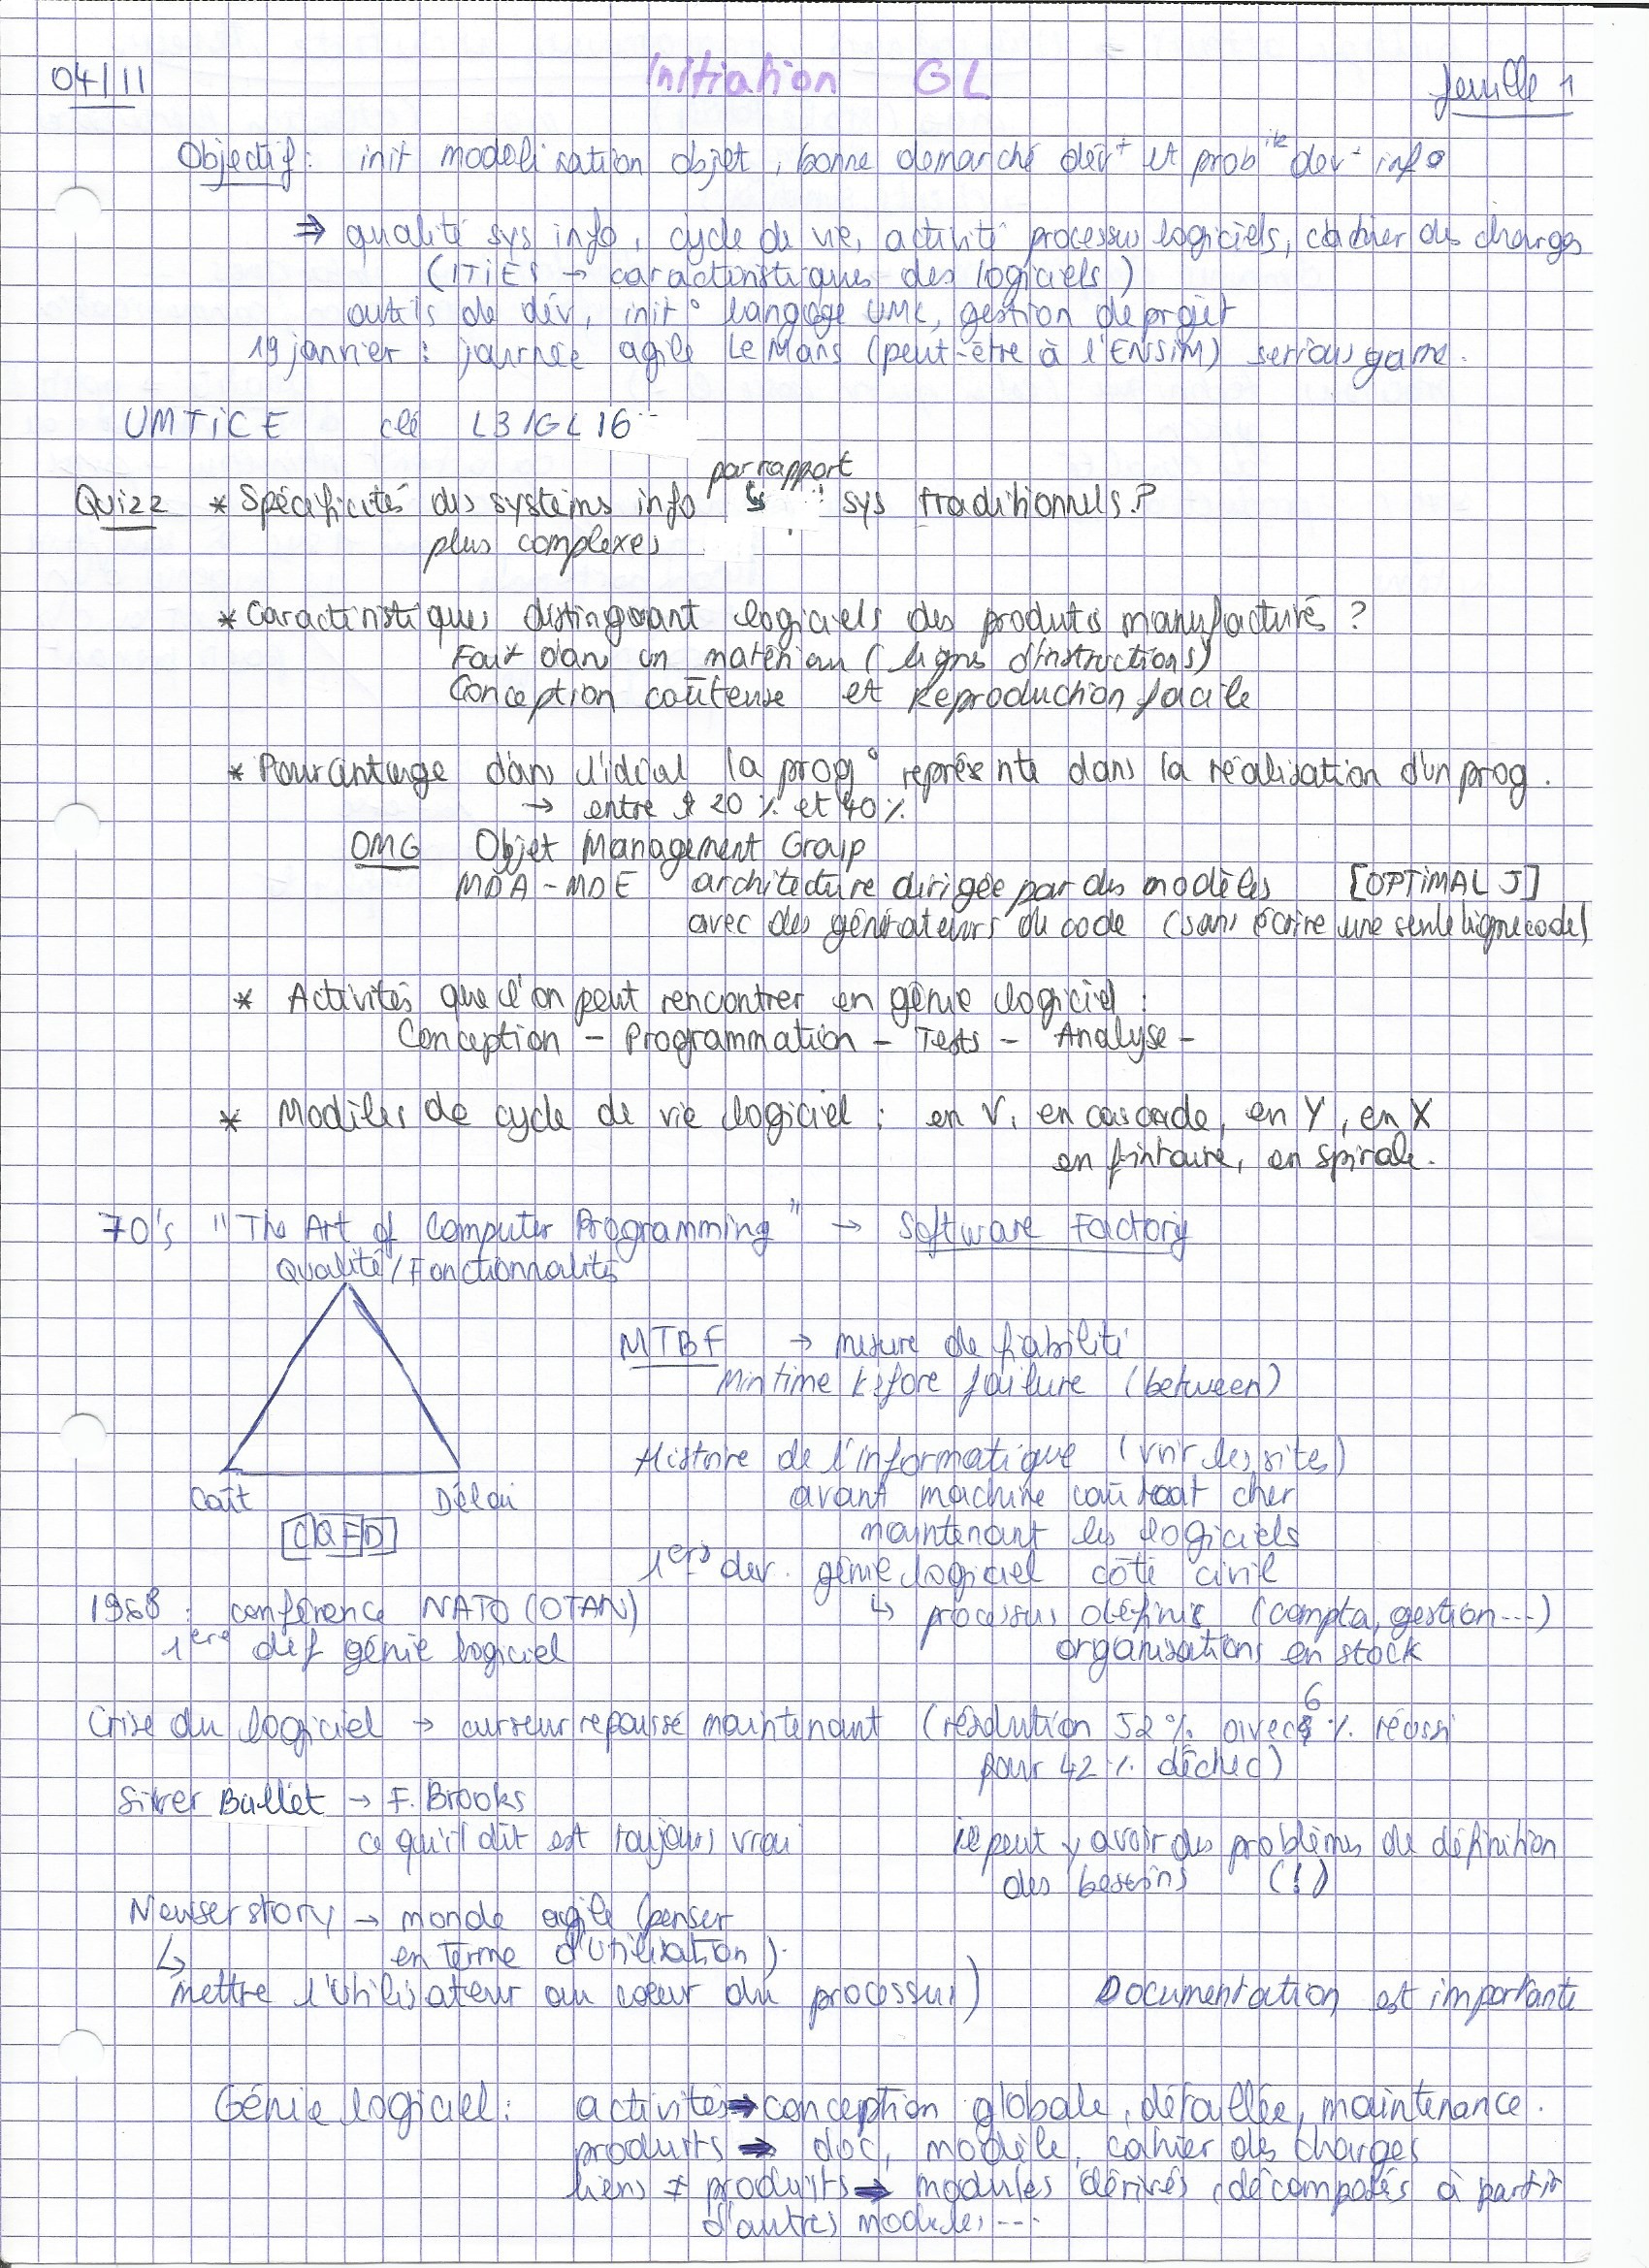 04/11
Initiation GL
feuille 1
Objectif : init modélisation objet, bonne démarche dévt et probite devt info
⇒ qualité sys info, cycle de vie, activité processus logiciels, cahier des charges
(ITIES → caractéristiques des logiciels)
outils de dév, init° langage UML, gestion de projet
19 janvier : journée agile Le Mans (peut-être à l'ENSIM) serious game.
UMTICE clé L3IGL16
par rapport
Quizz * Spécificités des systèmes info sys traditionnels ?
plus complexes
* Caractéristiques distinguant logiciels des produits manufacturés ?
Fait dans un matériau (lignes d'instructions)
Conception coûteuse et Reproduction facile
* Pourcentage dans l'idéal la prog° représente dans la réalisation d'un prog.
→ entre 20 % et 40 %
OMG Objet Management Group
MDA - MDE architecture dirigée par des modèles [OPTIMAL J]
avec des générateurs du code (sans écrire une seule ligne code)
* Activités que l'on peut rencontrer en génie logiciel :
Conception - Programmation - Tests - Analyse -
* Modèles de cycle de vie logiciel : en V, en cascade, en Y, en X
en fontaine, en spirale.
70's "The Art of Computer Programming" → Software Factory
Qualité / Fonctionnalités
MTBF → mesure de fiabilité
Min time before failure (between)
Histoire de l'informatique (voir les sites)
Coût Délai
avant machine coûtait cher
CQFD
maintenant les logiciels
1ers dev. génie logiciel côté civil
1968 : conférence NATO (OTAN)
↳ processus définis (compta, gestion...)
1ère def génie logiciel
organisations en stock
6
Crise du logiciel → curseur repoussé maintenant (résolution 52 % avec % réussi
pour 42 % d'échec)
Silver Bullet → F. Brooks
ce qu'il dit est toujours vrai
il peut y avoir des problèmes de définition
des besoins (!)
New user story → monde agile (penser
en terme d'utilisation).
↳
mettre l'utilisateur au coeur du processus)
Documentation est importante
Génie logiciel : activités → conception globale, détaillée, maintenance.
produits → doc, modèle, cahier des charges
liens ≠ produits → modules dérivés, décomposés à partir
d'autres modules ...